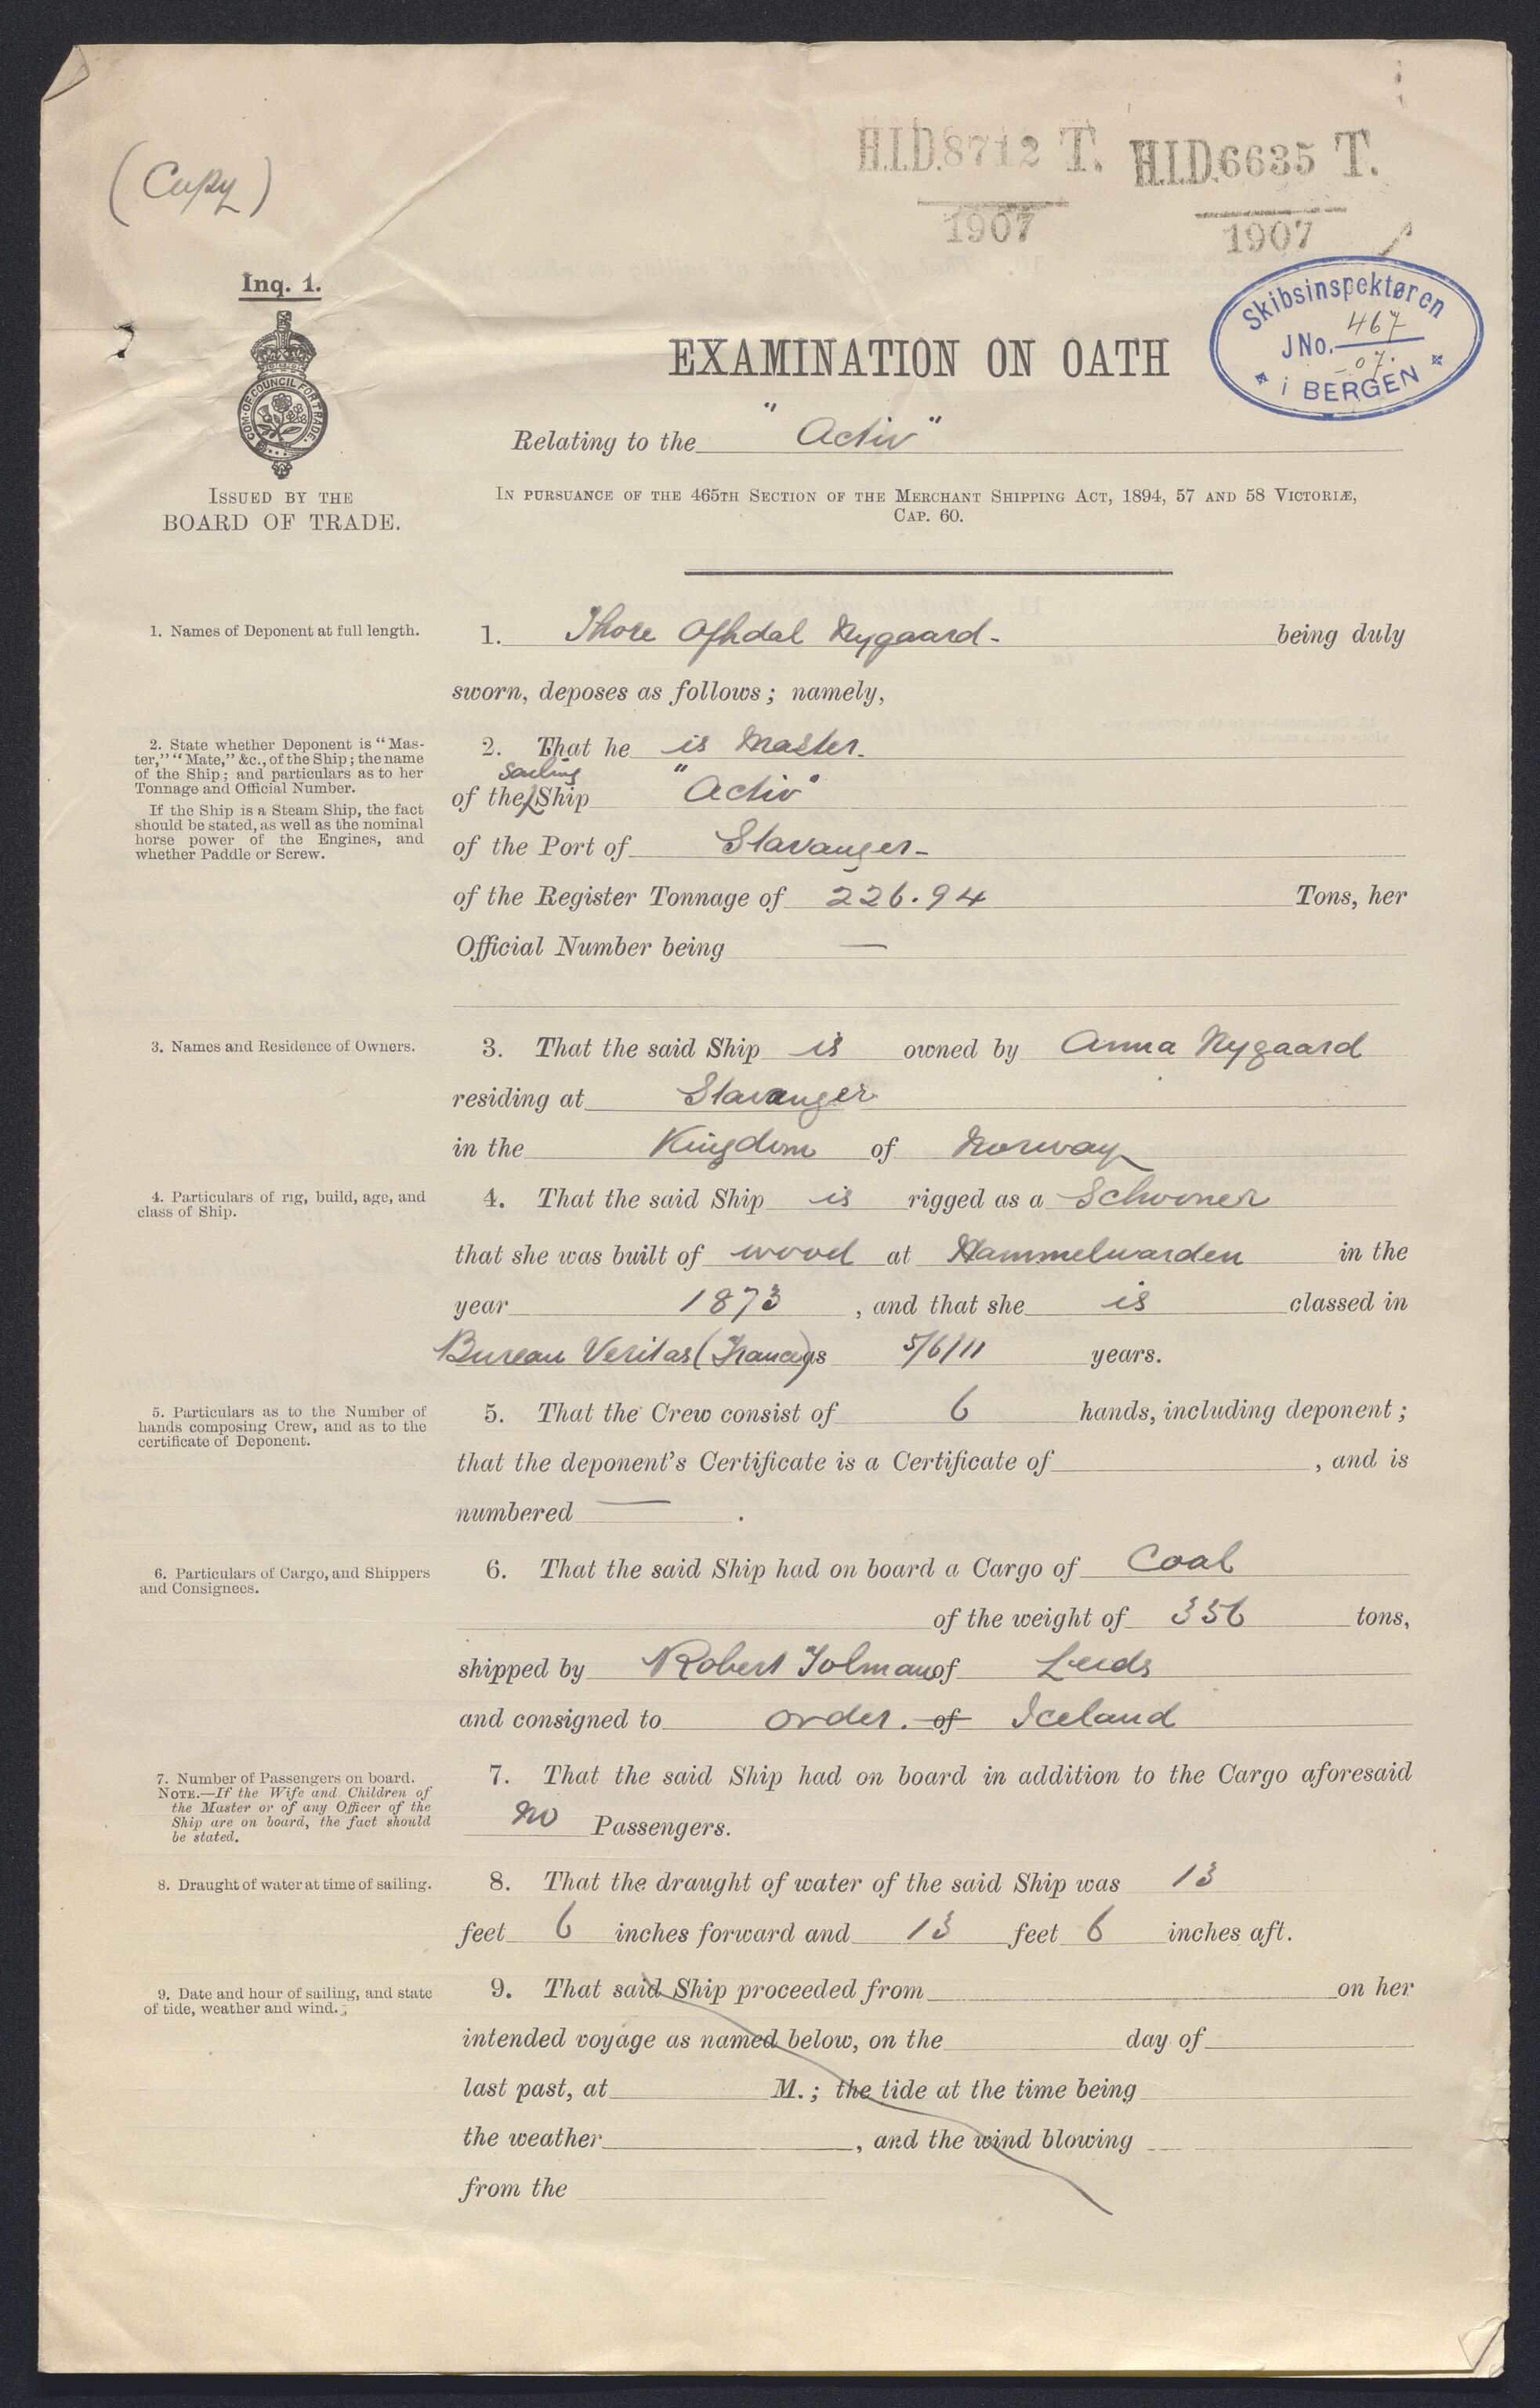 (Copy)
H.I.D. 8712 T.
1907
H.I.D. 6635 T.
1907
Inq. 1.
COM. OF COUNCIL FOR TRADE.
ISSUED BY THE
BOARD OF TRADE.
Skibsinspektøren
J No. 467
-07.
i BERGEN
EXAMINATION ON OATH
Relating to the "Activ"
IN PURSUANCE OF THE 465TH SECTION OF THE MERCHANT SHIPPING ACT, 1894, 57 AND 58 VICTORIÆ,
CAP. 60.
1. Names of Deponent at full length.
1. Thore Nygaard - being duly
sworn, deposes as follows; namely,
2. State whether Deponent is "Mas-
ter," "Mate," &c., of the Ship; the name
of the Ship; and particulars as to her
Tonnage and Official Number.
If the Ship is a Steam Ship, the fact
should be stated, as well as the nominal
horse power of the Engines, and
whether Paddle or Screw.
2. That he is Master.
sailing
of the Ship "Activ"
of the Port of Stavanger -
of the Register Tonnage of 226.94 Tons, her
Official Number being —
3. Names and Residence of Owners.
3. That the said Ship is owned by Anna Nygaard
residing at Stavanger
in the Kingdom of Norway
4. Particulars of rig, build, age, and
class of Ship.
4. That the said Ship is rigged as a Schooner
that she was built of wood at Hammelwarden in the
year 1873, and that she is classed in
Bureau Veritas (France) as 5/6/11 years.
5. Particulars as to the Number of
hands composing Crew, and as to the
certificate of Deponent.
5. That the Crew consist of 6 hands, including deponent;
that the deponent's Certificate is a Certificate of , and is
numbered — .
6. Particulars of Cargo, and Shippers
and Consignees.
6. That the said Ship had on board a Cargo of Coal
of the weight of 356 tons,
shipped by Robert Tolman of Leeds
and consigned to order. of Iceland
7. Number of Passengers on board.
NOTE.—If the Wife and Children of
the Master or of any Officer of the
Ship are on board, the fact should
be stated.
7. That the said Ship had on board in addition to the Cargo aforesaid
no Passengers.
8. Draught of water at time of sailing.
8. That the draught of water of the said Ship was 13
feet 6 inches forward and 13 feet 6 inches aft.
9. Date and hour of sailing, and state
of tide, weather and wind.
9. That said Ship proceeded from on her
intended voyage as named below, on the day of
last past, at M.; the tide at the time being
the weather , and the wind blowing
from the